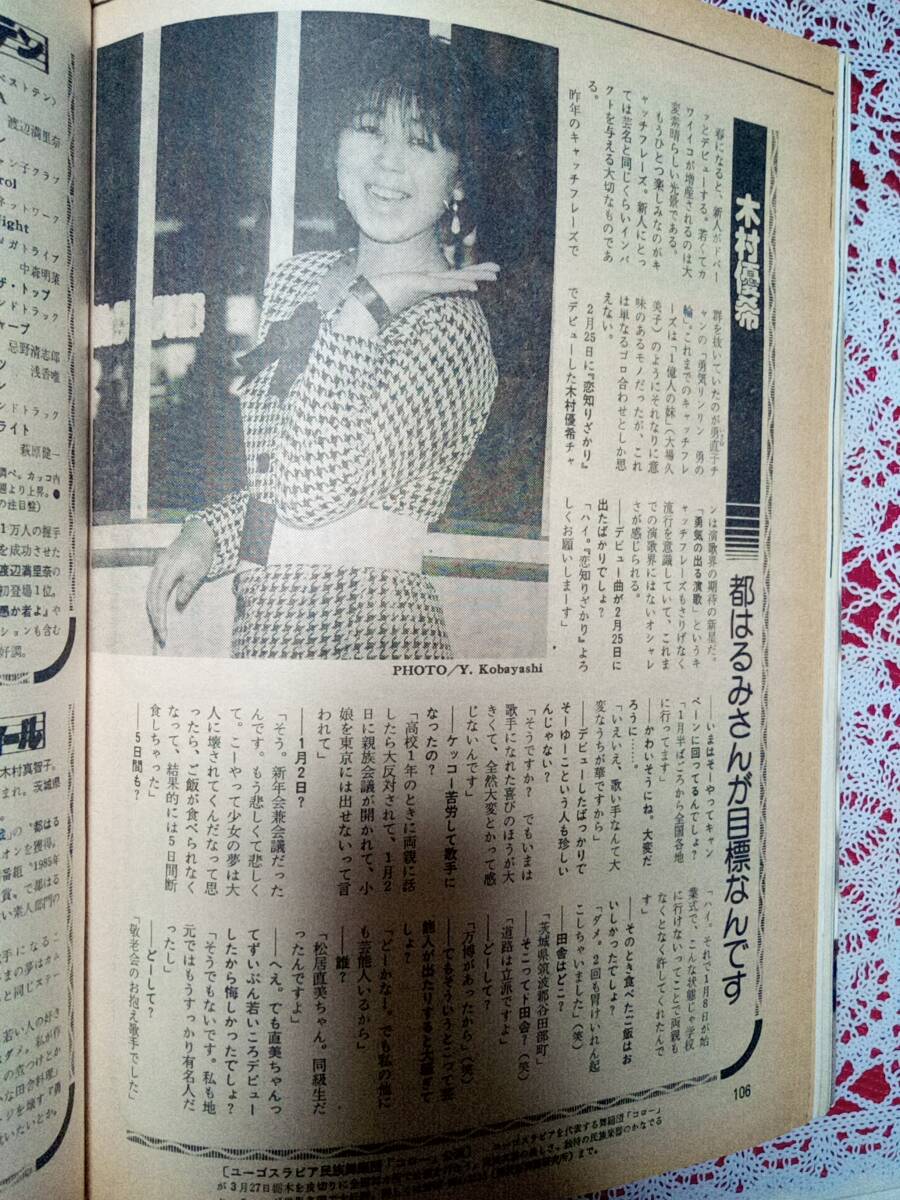 木村優希
都はるみさんが目標なんです
春になると、新人がドバー
ッとデビューする。若くてカ
ワイイコが増産されるのは大
変素晴らしい光景である。
もうひとつ楽しみなのがキ
ャッチフレーズ。新人にとっ
ては芸名と同じくらいインパ
クトを与える大切なものであ
る。
昨年のキャッチフレーズで
群を抜いていたのが勇直子チ
ャンの「勇気リンリン 勇の
輪」。これまでのキャッチフレ
ーズは「1億人の妹」(大場久
美子)のようにそれなりに意
味のあるモノだったが、これ
は単なるゴロ合わせとしか思
えない。
2月25日に『恋知りざかり』
でデビューした木村優希チャ
ンは演歌界の期待の新星だ。
「勇気の出る演歌」というキ
ャッチフレーズもさりげなく
流行を意識していて、これま
での演歌界にはないオシャレ
さが感じられる。
──デビュー曲が2月25日に
出たばかりでしょ?
「ハイ。『恋知りざかり』よろ
しくお願いしまーす」
PHOTO/Y. Kobayashi
──いまはそーやってキャン
ペーンに回ってるんでしょ?
「1月半ばごろから全国各地
に行ってます」
──かわいそうにね。大変だ
ろうに……。
「いえいえ、歌い手なんて大
変なうちが華ですから」
──デビューしたばっかりで
そーゆーこという人も珍しい
んじゃない?
「そうですか? でもいまは
歌手になれた喜びのほうが大
きくて、全然大変とかって感
じないんです」
──ケッコー苦労して歌手に
なったの?
「高校1年のときに両親に話
したら大反対されて、1月2
日に親族会議が開かれて、小
娘を東京には出せないって言
われて」
──1月2日?
「そう。新年会兼会議だった
んです。もう悲しくて悲しく
て。こーやって少女の夢は大
人に壊されてくんだなって思
ったら、ご飯が食べられなく
なって、結果的には5日間断
食しちゃった」
──5日間も?
「ハイ。それで1月8日が始
業式で、こんな状態じゃ学校
に行けないってことで両親も
なくとなく許してくれたんで
す」
──そのとき食べたご飯はお
いしかったでしょ?
「ダメ。2回も胃けいれん起
こしちゃいました」(笑)
──田舎はどこ?
「茨城県筑波郡谷田部町」
──そこってド田舎?(笑)
「道路は立派ですよ」
──どーして?
「万博があったから」(笑)
──でもそういうとこって芸
能人が出たりすると大騒ぎで
しょ?
「どーかなー。でも私の他に
も芸能人いるから」
──誰?
「松居直美ちゃん。同級生だ
ったんですよ」
──へえ。でも直美ちゃんっ
てずいぶん若いころデビュー
したから悔しかったでしょ?
「そうでもないです。私も地
元ではもうすっかり有名人だ
ったし」
──どーして?
「敬老会のお抱え歌手でした」
106
渡辺満里奈
中森明菜
忌野清志郎
浅香唯
萩原健一
1万人の握手
を成功させた
渡辺満里奈の
初登場1位。
愚か者よ』や
ションも含む
好調。
木村真智子。
まれ。茨城県
の〝都はる
オンを獲得。
番組〝1985年
賞〟で都はる
い素人部門の
〔ユーゴスラビア民族舞踊団「コロー」